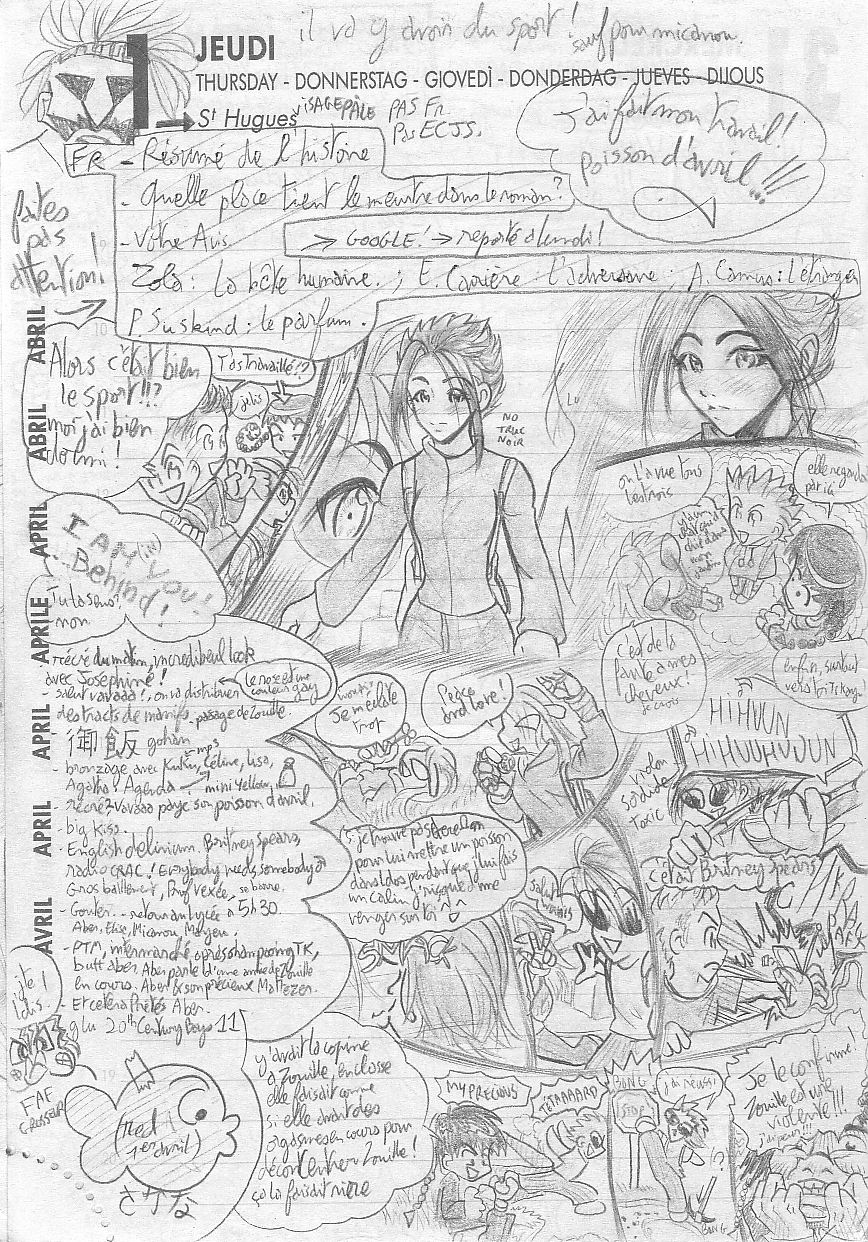 il va y avoir du sport !
sauf pour micanou.
1 JEUDI
THURSDAY - DONNERSTAG - GIOVEDÌ - DONDERDAG - JUEVES - DIJOUS
St Hugues
VISAGE PÂLE
PAS Fr.
Pas ECJS.
J'ai fait mon travail !
poisson d'avril !!!
FR - Résumé de l'histoire
- Quelle place tient le meurtre dans le roman ?
- Votre Avis.
→ GOOGLE ! → reporté à lundi !
Zola : La bête humaine. ; E. Carrière : l'adversaire ; A. Camus : L'étranger
P. Suskind : le parfum.
faites
pas
attention !
ABRIL
ABRIL
APRIL
APRILE
APRIL
APRIL
AVRIL
Alors c'était bien
le sport !!?
moi j'ai bien
dormi !
T'as travaillé !?
NO
TRUC
NOIR
on l'a vue tous
les trois
elle regardait
par ici
c'est de la
faute à mes
cheveux !
je crois
enfin, surtout
vers toi
I AM (IN) YOU!
...Behind!
Tu la sens ?
non
récré du matin, incredibeul look
avec Josephine !
- salut vavaaa !, on va distribuer
des tracts de manifs. passage de Zouille.
Le rose est une
couleur gay
御飯 gohan
- bronzage avec Kuku, Céline, Lisa,
mps
Agatha ! Agenda → mini yellow.
- récré ? vavaaa paye son poisson d'avril.
- big Kiss.
- English delirium. Britney Spears,
radio CRAC ! Everybody needs somebody
Gros baillement, Prof vexée, se barre.
- Gouter... retour au lycée à 5h30.
Aber, Elise, Micanou, Mayeu.
- PTM, intermarché après shampooing TK,
butt aber. Aber parle d'une amie de Zouille
en cours. Aber & son précieux Mattezer.
- Et cetera Prêtés Aber.
glu 20th Century Boys 11
Je me calte
trop
Peace
and love !
HIHUUN
HIHUUHUUUN
violon
sordide
toxic
C'était Britney Spears
si je trouve pas
pour lui mettre un poisson
dans l'dos pendant que j'lui fais
un calin, j'risque d'me
venger sur toi ^^
Salut
mimis
y'avait la copine
à Zouille, en classe
elle faisait comme
si elle avait des
orgasmes en cours pour
déconcentrer Zouille !
ça la faisait rire
FAF
GROSSEUR
(jeudi
1er avril)
さかな
MY PRECIOUS
TÉTAAAARD
BONG
STOP
j'ai réussi
BANG
Je le confirme !
Zouille est une
violente !!!
j'ai peur !!!